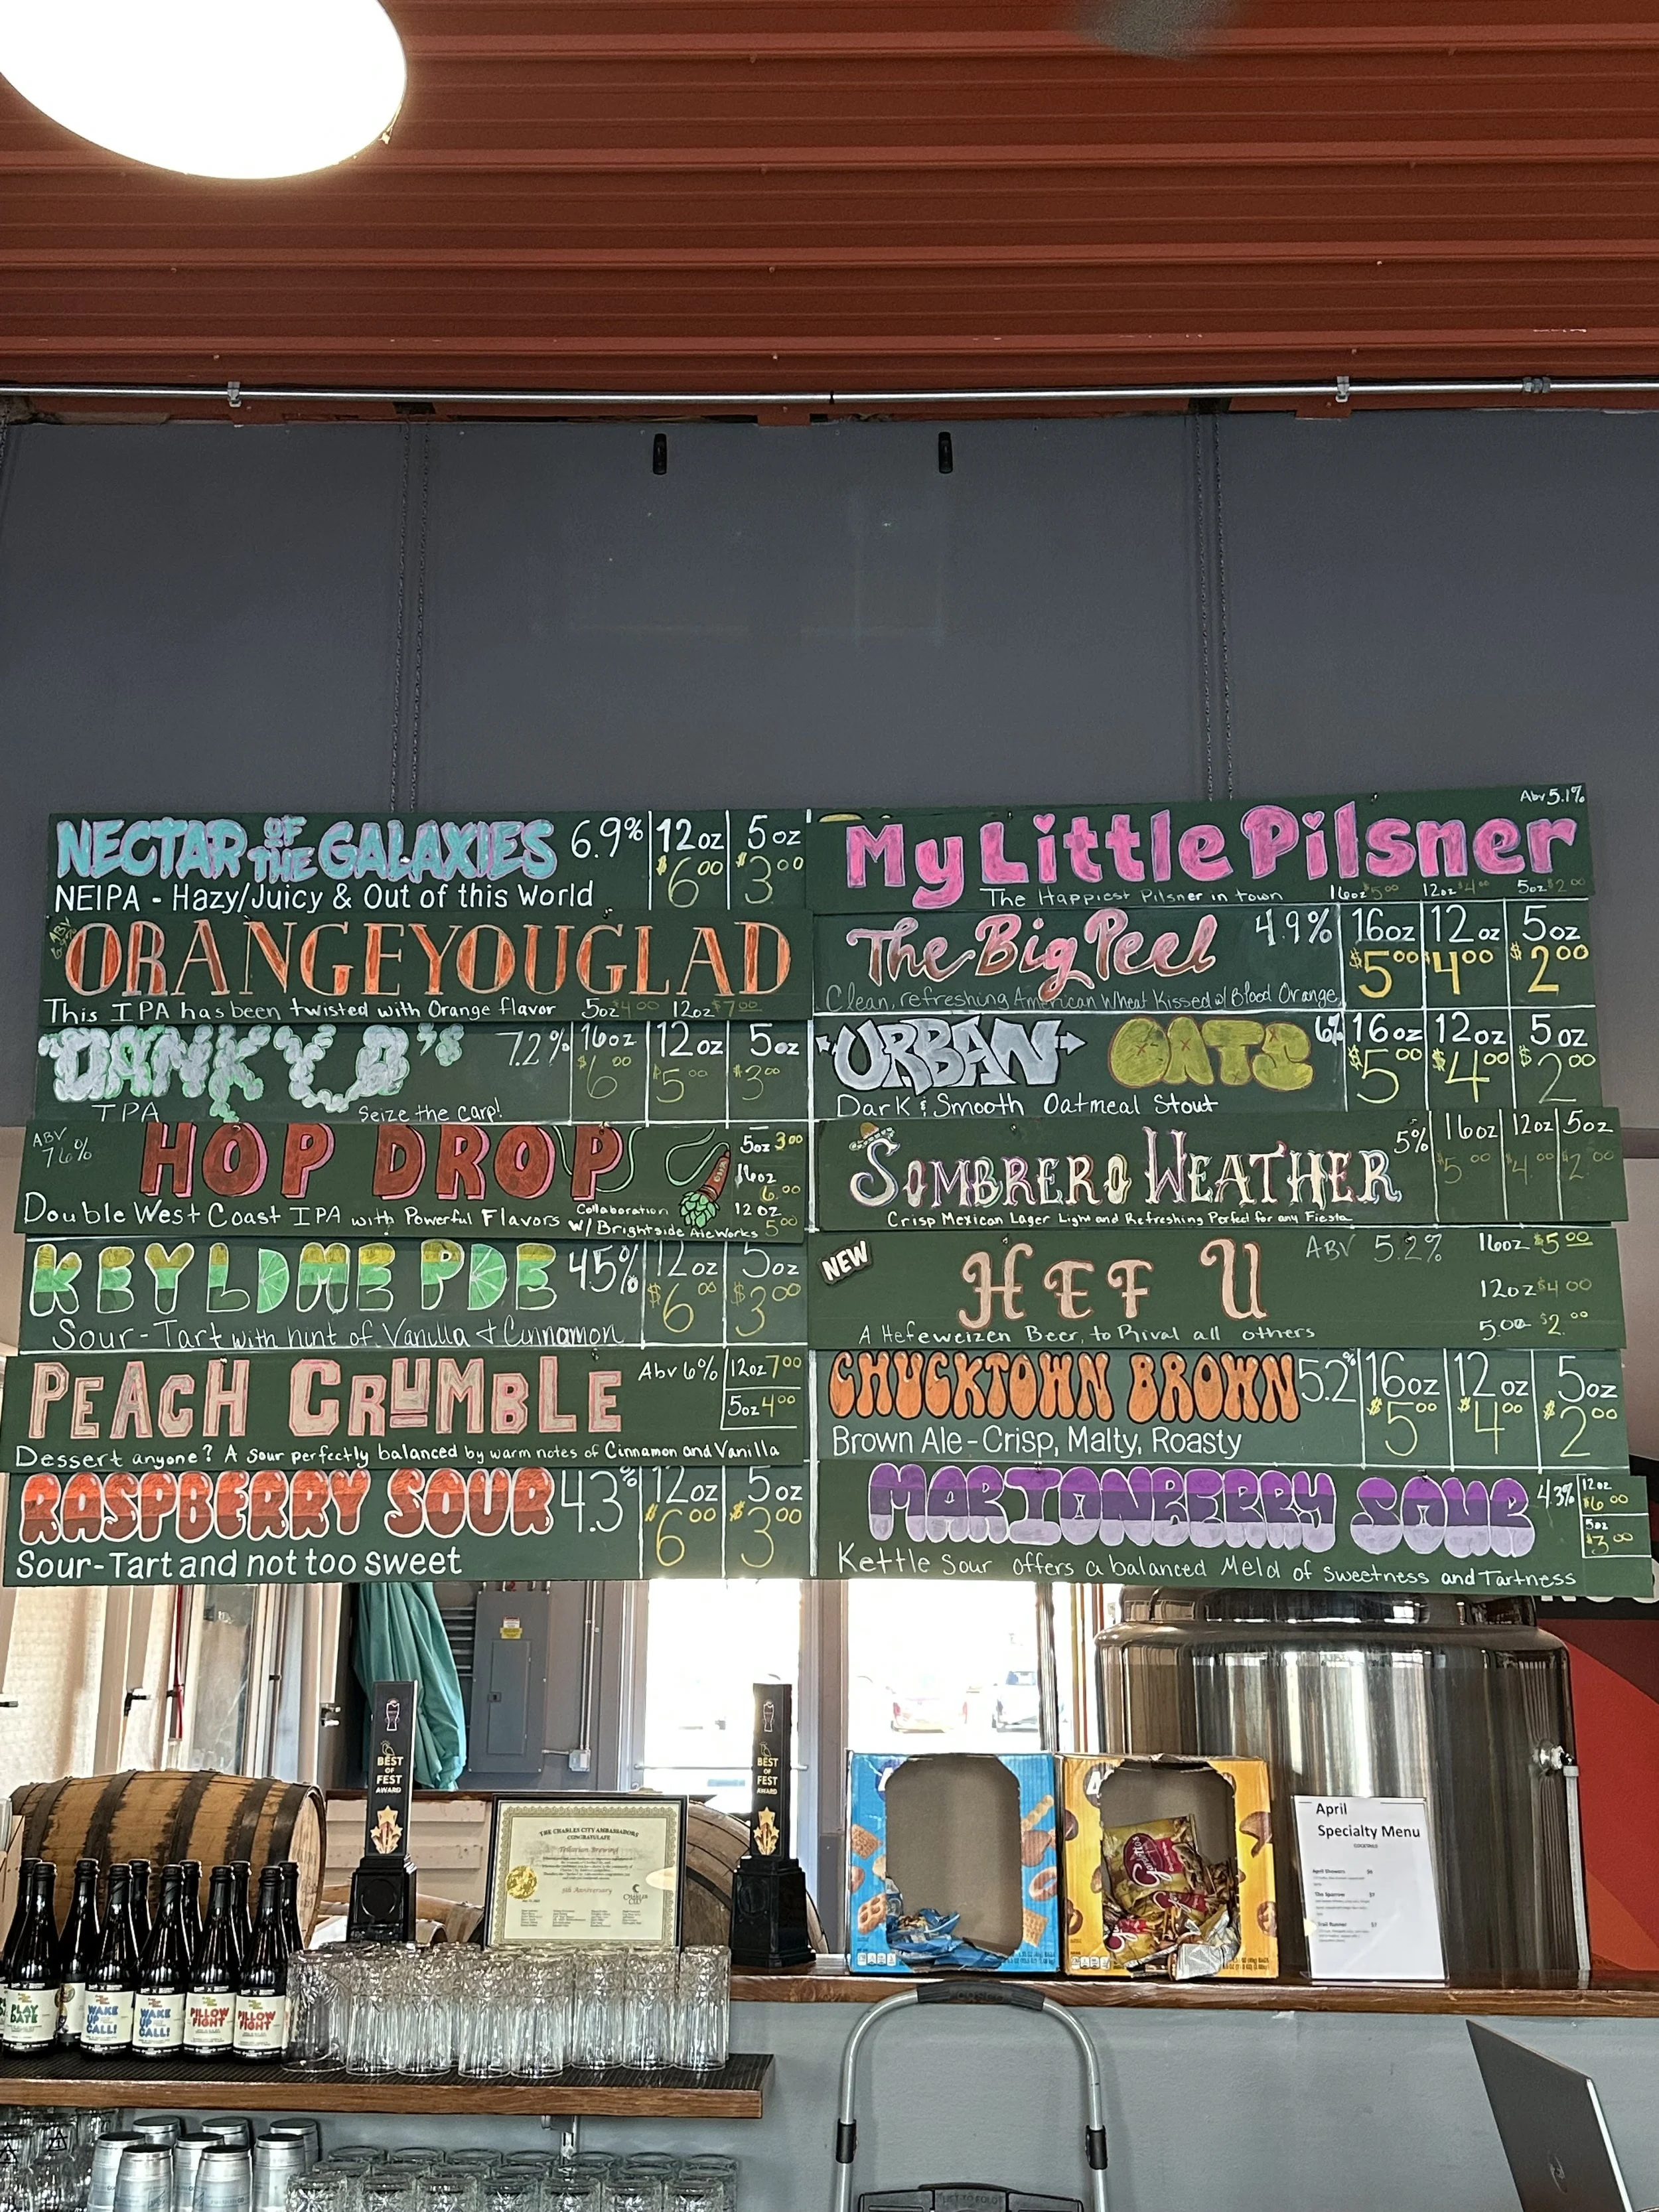 NECTAR OF THE GALAXIES 6.9% 12oz 5oz
$6.00 $3.00
NEIPA - Hazy/Juicy & Out of this World
ABV
ORANGEYOUGLAD
This IPA has been twisted with Orange flavor 5oz $4.00 12oz $7.00
DANK 7.2% 16oz 12oz 5oz
$6.00 $5.00 $3.00
IPA Seize the Carp!
ABV 7.6%
HOP DROP
5oz 3.00
16oz
6.00
12oz
5.00
Double West Coast IPA with Powerful Flavors
Collaboration
w/ Brightside AleWorks
KEY LIME PIE 4.5% 12oz 5oz
$6.00 $3.00
Sour-Tart with hint of Vanilla & Cinnamon
PEACH CRUMBLE Abv 6% 12oz 7.00
5oz 4.00
Dessert anyone? A sour perfectly balanced by warm notes of Cinnamon and Vanilla
RASPBERRY SOUR 4.3% 12oz 5oz
$6.00 $3.00
Sour-Tart and not too sweet
Abv 5.1%
My Little Pilsner
The Happiest Pilsner in town 16oz $5.00 12oz $4.00 5oz $2.00
The Big Peel 4.9% 16oz 12oz 5oz
$5.00 $4.00 $2.00
Clean, refreshing American Wheat Kissed w/ Blood Orange
URBAN OATS 6% 16oz 12oz 5oz
$5.00 $4.00 $2.00
Dark & Smooth Oatmeal Stout
SOMBRERO WEATHER 5% 16oz 12oz 5oz
$5.00 $4.00 $2.00
Crisp Mexican Lager Light and Refreshing Perfect for any Fiesta
NEW
HEF U ABV 5.2% 16oz $5.00
12oz $4.00
5.00 $2.00
A Hefeweizen Beer, to Rival all others
CHUCKTOWN BROWN 5.2% 16oz 12oz 5oz
$5.00 $4.00 $2.00
Brown Ale - Crisp, Malty, Roasty
MARIONBERRY SOUR 4.3% 12oz
$6.00
5oz
$3.00
Kettle Sour offers a balanced Meld of sweetness and Tartness
BEST
OF
FEST
AWARD
BEST
OF
FEST
AWARD
THE CHARLES CITY AMBASSADORS
CONGRATULATE
Tellurian Brewing
5th Anniversary
CHARLES
CITY
April
Specialty Menu
COCKTAILS
April Showers
The Sparrow
Trail Runner
PLAY
DATE
WAKE
UP
CALL!
WAKE
UP
CALL!
PILLOW
FIGHT
PILLOW
FIGHT